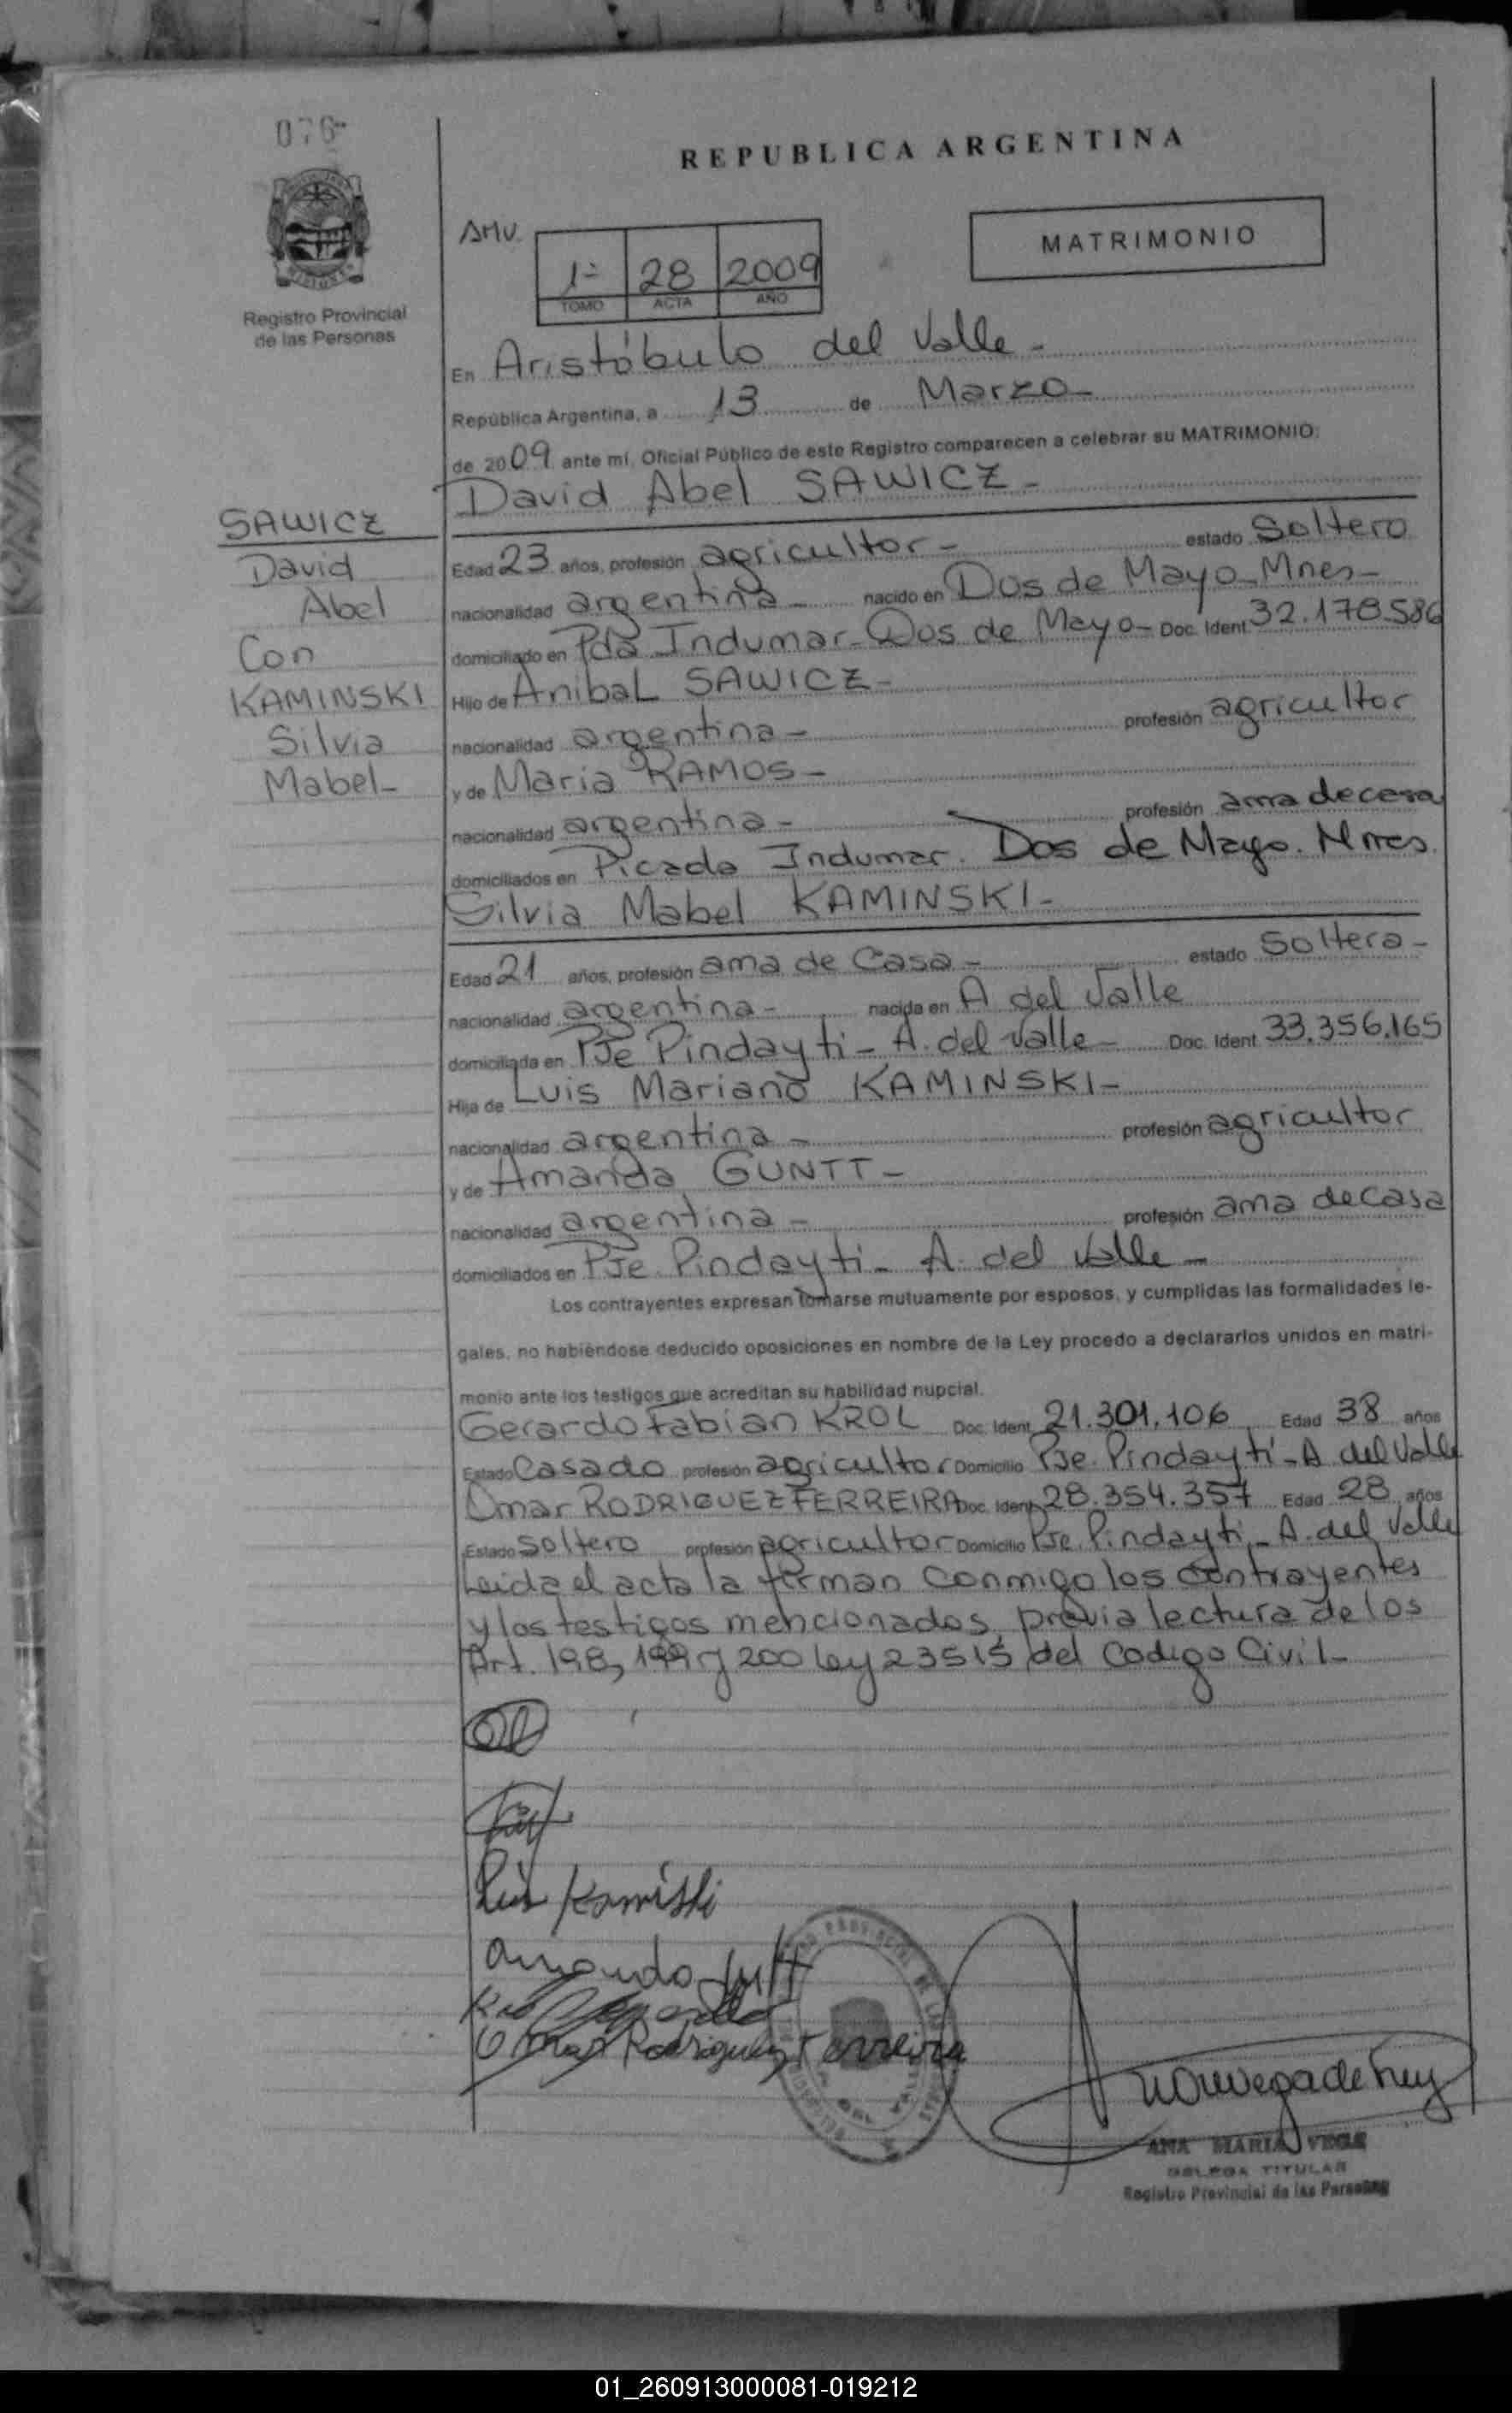 076
REPUBLICA ARGENTINA
AMV.
MATRIMONIO
1º 28 2009
TOMO ACTA AÑO
Registro Provincial
de las Personas
En Aristóbulo del Valle -
República Argentina, a 13 de Marzo -
de 2009 ante mí, Oficial Público de este Registro comparecen a celebrar su MATRIMONIO:
David Abel SAWICZ -
SAWICZ
David
Abel
Con
KAMINSKI
Silvia
Mabel -
Edad 23 años, profesión agricultor - estado Soltero
nacionalidad argentina - nacido en Dos de Mayo - Mnes -
domiciliado en Pda Indumar - Dos de Mayo - Doc. Ident. 32.178.586
Hijo de Anibal SAWICZ -
nacionalidad argentina - profesión agricultor
y de Maria RAMOS -
nacionalidad argentina - profesión ama de casa
domiciliados en Picada Indumar. Dos de Mayo. Mnes.
Silvia Mabel KAMINSKI -
Edad 21 años, profesión ama de Casa - estado Soltera -
nacionalidad argentina - nacida en A del Valle
domiciliada en PJe Pindayti - A. del Valle - Doc. Ident. 33.356.165
Hija de Luis Mariano KAMINSKI -
nacionalidad argentina - profesión agricultor
y de Amanda GUNTT -
nacionalidad argentina - profesión ama de Casa
domiciliados en PJe. Pindayti - A. del Valle -
Los contrayentes expresan tomarse mutuamente por esposos, y cumplidas las formalidades le-
gales, no habiéndose deducido oposiciones en nombre de la Ley procedo a declararlos unidos en matri-
monio ante los testigos que acreditan su habilidad nupcial.
Gerardo Fabian KROL Doc. Ident. 21.301.106 Edad 38 años
Estado Casado profesión agricultor Domicilio PJe. Pindayti - A del Valle
Omar RODRIGUEZ FERREIRA Doc. Ident. 28.354.357 Edad 28 años
Estado Soltero profesión agricultor Domicilio PJe. Pindayti - A. del Valle
Leida el acta la firman conmigo los contrayentes
y los testigos mencionados, previa lectura de los
Art. 198, 199 y 200 Ley 23515 del Codigo Civil -
Luis Kamiski
Omar Rodriguez Ferreira
ANA MARIA VEGA
DELEGA TITULAR
Registro Provincial de las Personas
01_260913000081-019212